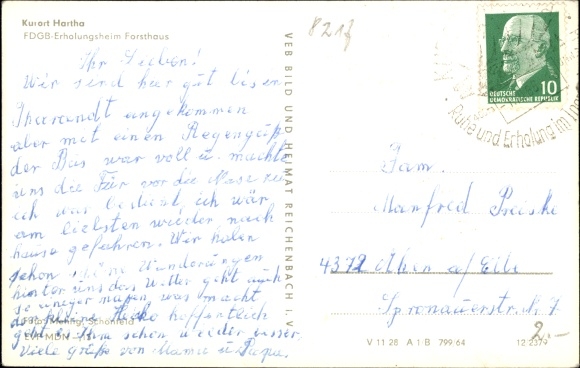 Kurort Hartha
FDGB-Erholungsheim Forsthaus
Ihr Lieben!
Wir sind hier gut bis in
Tharandt angekommen
aber mit einen Regenguß
der Bus war voll u. machte
uns die Tür vor die Nase zu
ich bedient, ich wär
am liebsten wieder nach
hause gefahren. Wir haben
schon schöne Wanderungen
hinter uns das Wetter geht auch
so einiger maßen, was macht
der kleine Heiko hoffentlich
geht es Ihm schon wieder besser.
Viele grüße von Mama u. Papa.
Schönfeld
VEB BILD UND HEIMAT REICHENBACH I. V.
821f
DEUTSCHE
DEMOKRATISCHE REPUBLIK
10
Ruhe und Erholung im
Fam.
Manfred
4372 Aken a/Elbe
2.-
V 11 28 A 1 B 799/64